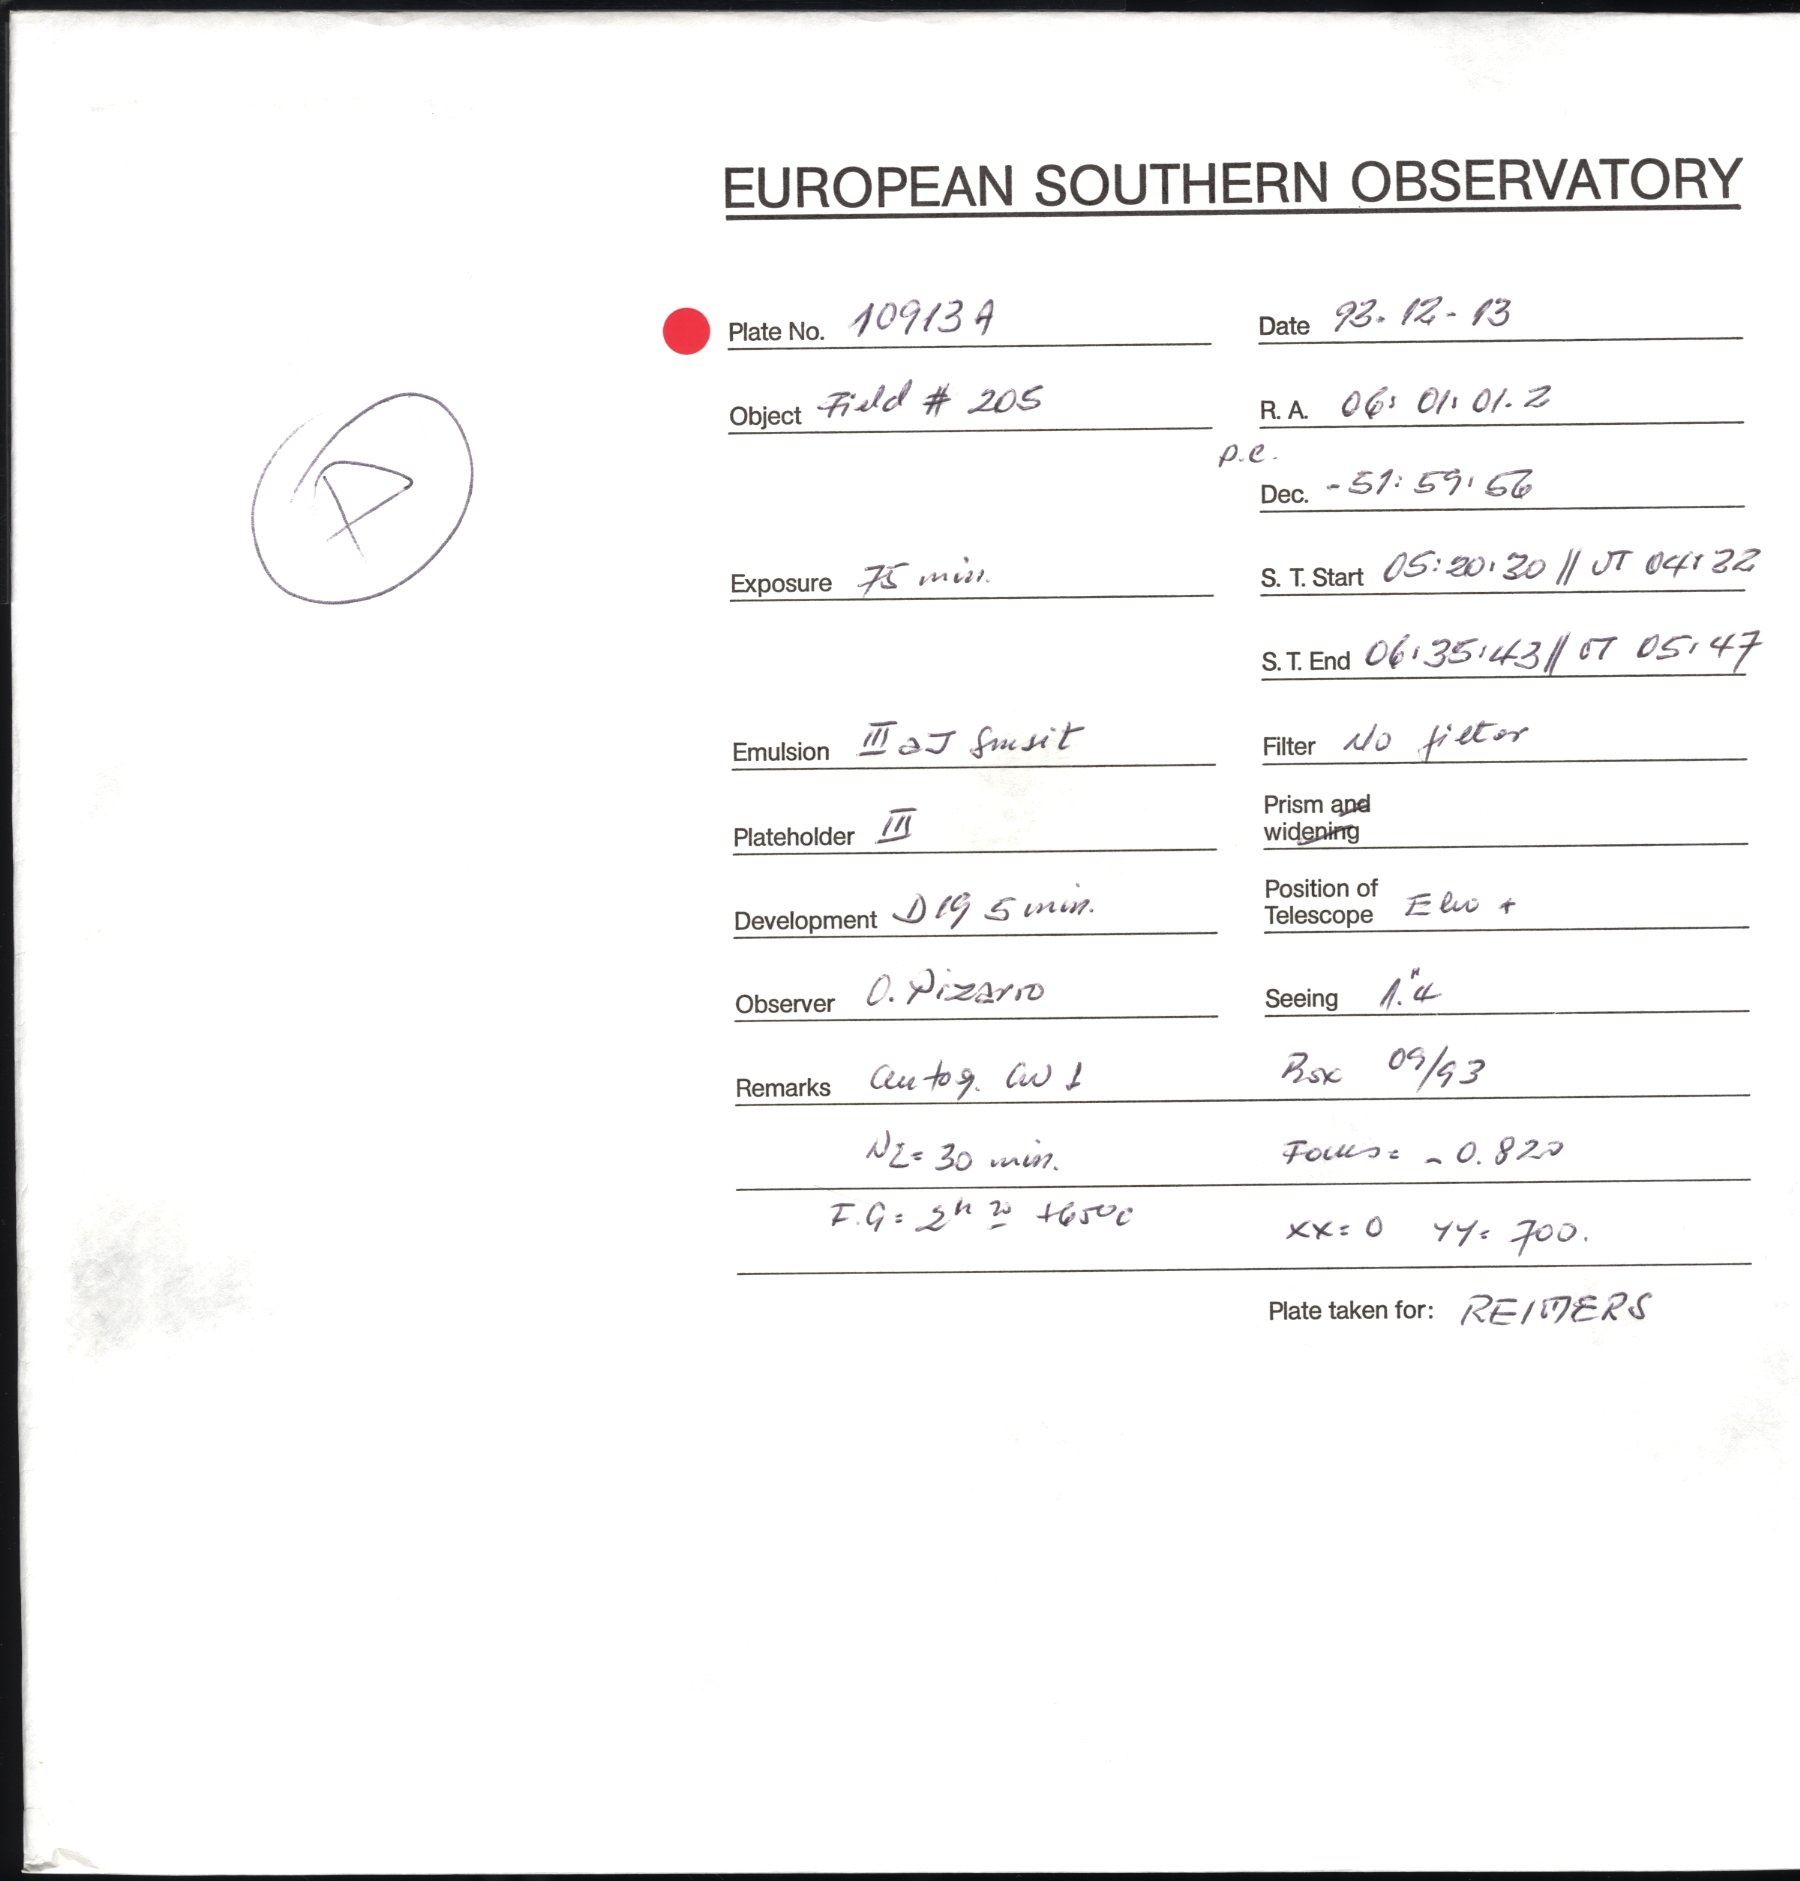 EUROPEAN SOUTHERN OBSERVATORY
Plate No. 10913 A Date 93-12-13
Object Field # 205 R. A. 06:01:01.2
P.C.
Dec. -51:59:56
Exposure 75 min. S. T. Start 05:20:30 // UT 04:32
S. T. End 06:35:43 // UT 05:47
Emulsion III aJ Filter No filter
Plateholder III Prism and widening
Development D19 5 min. Position of Telescope +
Observer O. Pizarro Seeing 1."4
Remarks autog. Box 09/93
N2= 30 min. Focus= - 0.820
F.G= 2h +65°C XX= 0 YY= 700.
Plate taken for: REIMERS